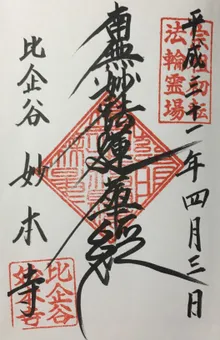 平成三十一年四月三日
初転
法輪霊場
南無妙法蓮華経
比企谷 妙本寺
比企谷
妙本寺